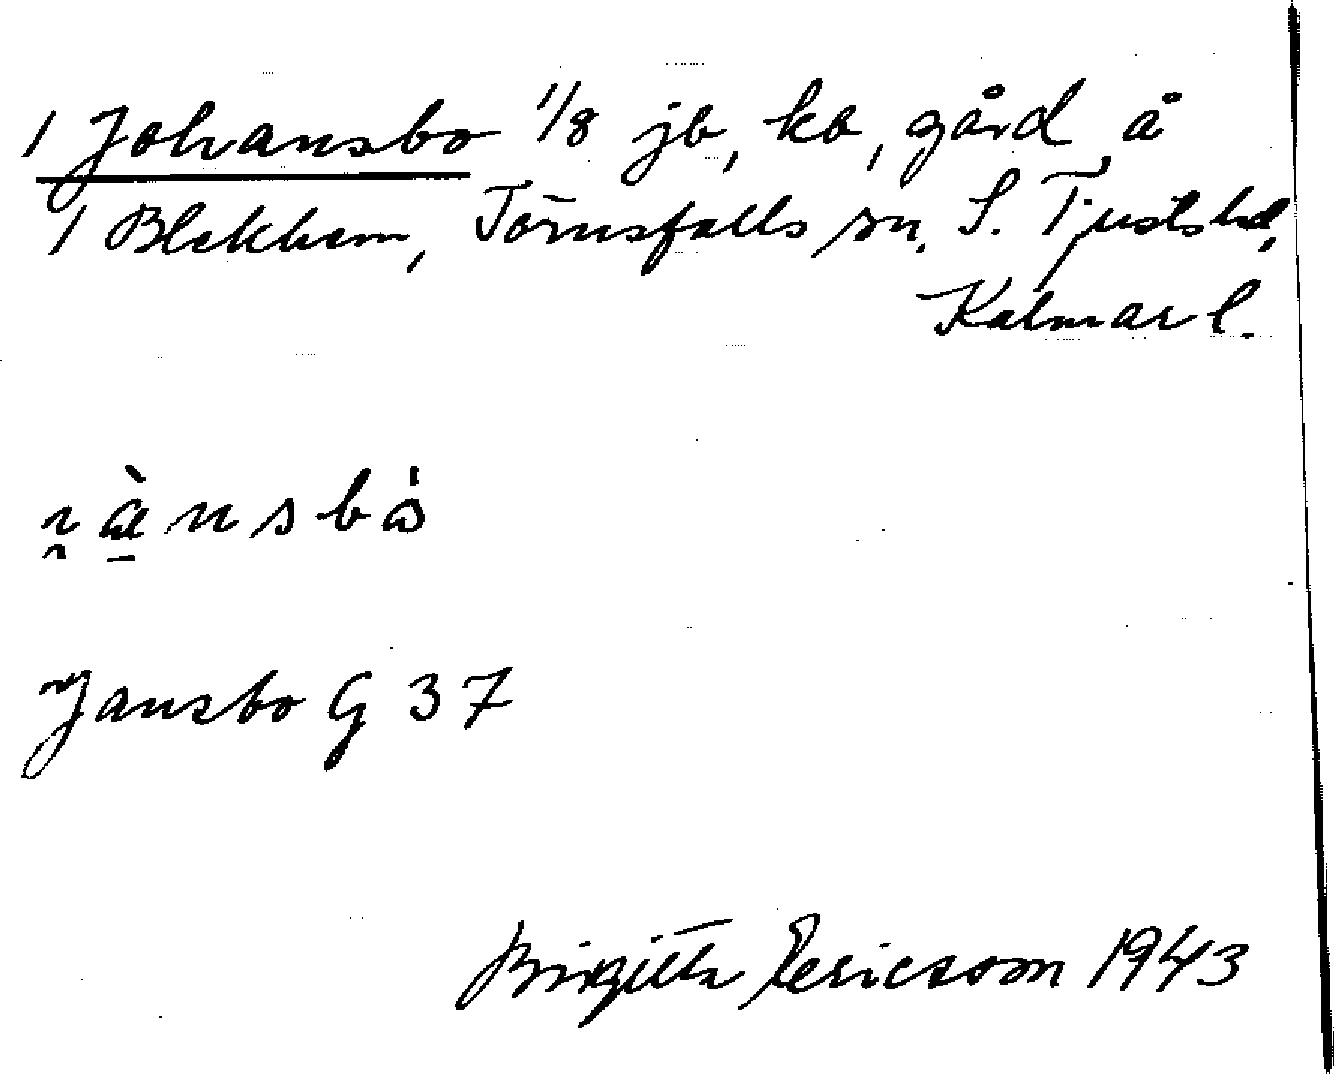 1 Johansbo 1/8 jb, kb, gård å
1 Blekhem, Törnsfalls sn. S. Tjusts hd,
Kalmar l.
Jansbo G 37
Birgitta Ericsson 1943